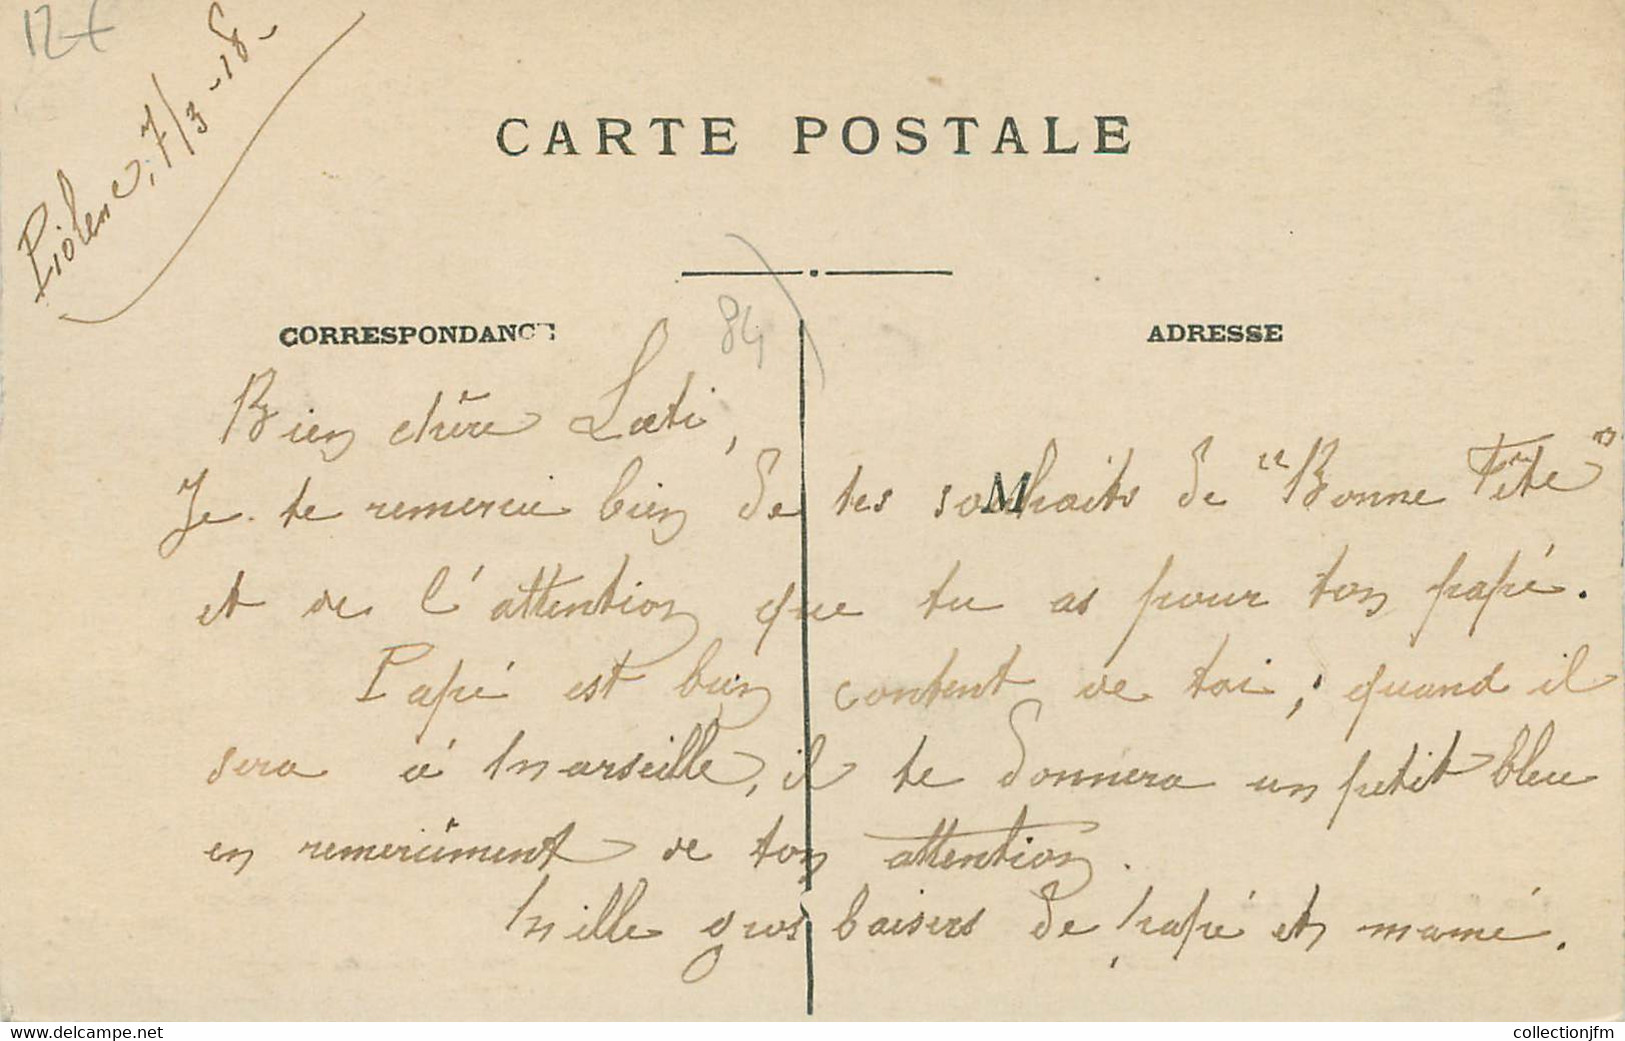 12€
Piolenc, 7/3-18-
CARTE POSTALE
84
CORRESPONDANCE
ADRESSE
Bien chère Laeti,
Je te remercie bien de tes souhaits de "Bonne Fête"
M
et de l'attention que tu as pour ton papé.
Papé est bien content de toi, quand il
sera à Marseille, il te donnera un petit bleu
en remerciment de ton attention.
Mille gros baisers de papé et mamé.
www.delcampe.net
collectionjfm